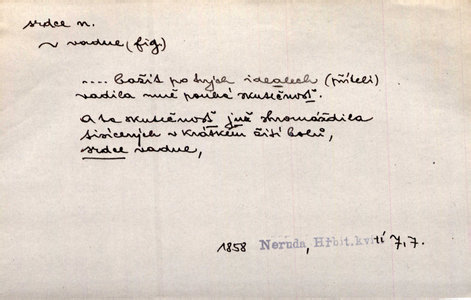 srdce n.
~ vadne (fig.)
.... bažit po tvých idealech (příteli)
vadila mně pouhá skutečnosť.
A ta skutečnosť již shromáždila
tisícerých v krátkém žití bolů,
srdce vadne,
1858 Neruda, Hřbit.kvítí 7,7.